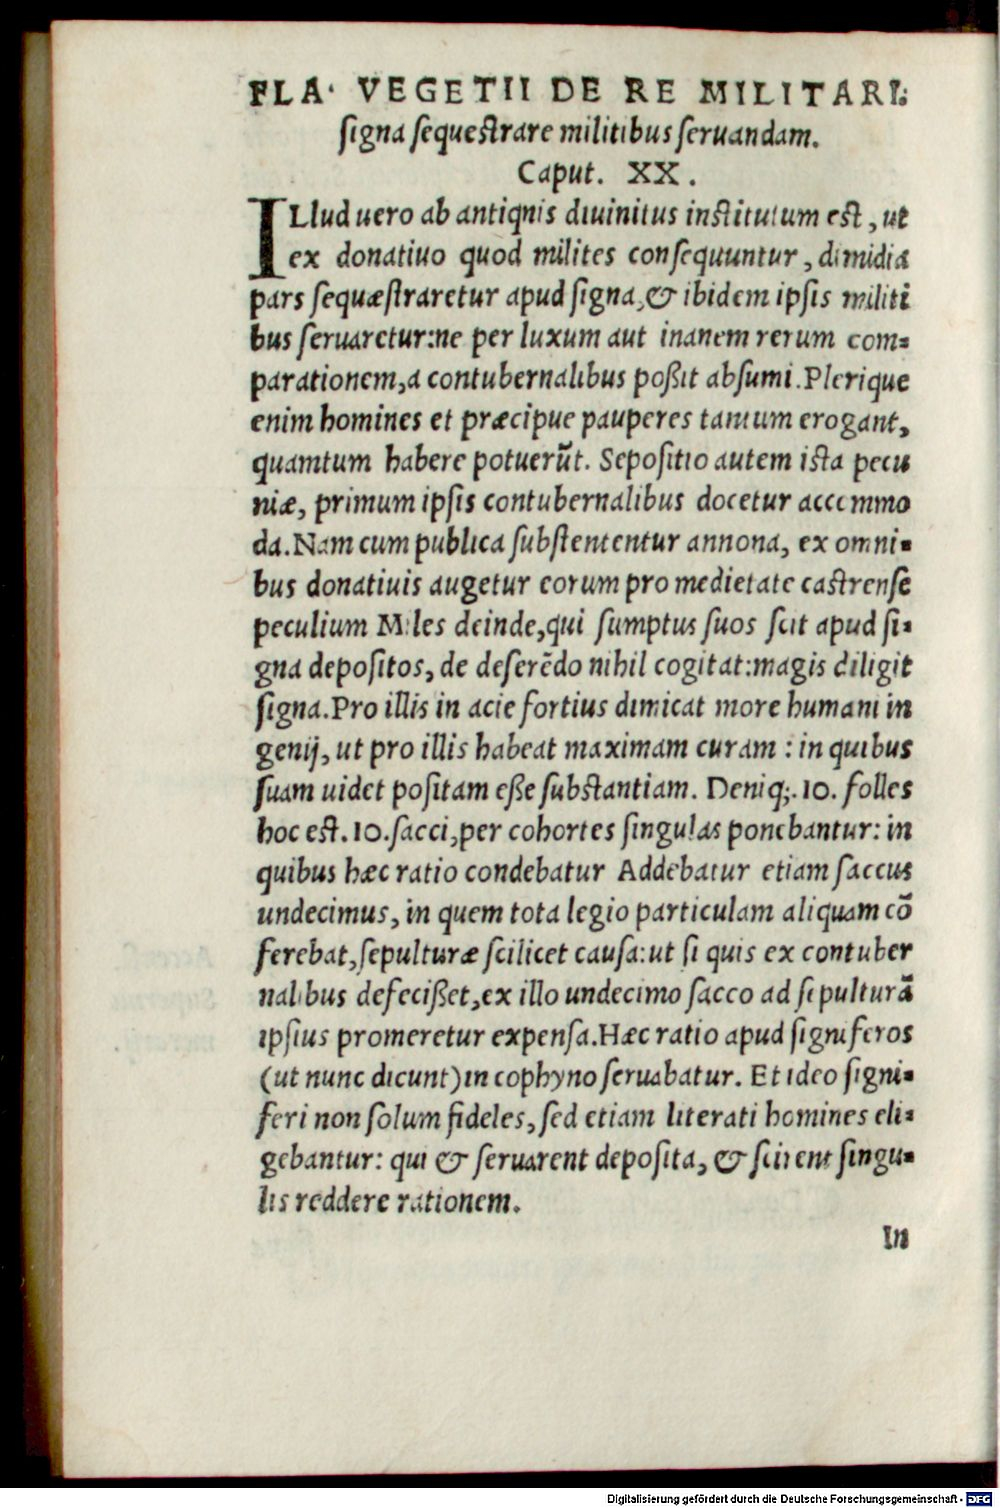 FLA. VEGETII DE RE MILITARI.
signa sequestrare militibus seruandam.
Caput. XX.
ILlud uero ab antiqnis diuinitus institutum est, ut
ex donatiuo quod milites consequuntur, dimidia
pars sequæstraretur apud signa, & ibidem ipsis militi
bus seruaretur:ne per luxum aut inanem rerum com-
parationem, a contubernalibus poßit absumi. Plerique
enim homines et præcipue pauperes tantum erogant,
quamtum habere potuerũt. Sepositio autem ista pecu
niæ, primum ipsis contubernalibus docetur accommo
da. Nam cum publica substententur annona, ex omni-
bus donatiuis augetur eorum pro medietate castrense
peculium Miles deinde, qui sumptus suos scit apud si-
gna depositos, de deserẽdo nihil cogitat:magis diligit
signa. Pro illis in acie fortius dimicat more humani in
genij, ut pro illis habeat maximam curam : in quibus
suam uidet positam eße substantiam. Deniq;. 10. folles
hoc est. 10. sacci, per cohortes singulas ponebantur: in
quibus hæc ratio condebatur Addebatur etiam saccus
undecimus, in quem tota legio particulam aliquam cõ
ferebat, sepulturæ scilicet causa: ut si quis ex contuber
nalibus defecißet, ex illo undecimo sacco ad sepulturã
ipsius promeretur expensa. Hæc ratio apud signiferos
(ut nunc dicunt) in cophyno seruabatur. Et ideo signi-
feri non solum fideles, sed etiam literati homines eli-
gebantur: qui & seruarent deposita, & scirent singu-
lis reddere rationem.
In
Digitalisierung gefördert durch die Deutsche Forschungsgemeinschaft - DFG